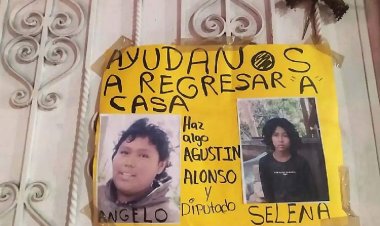 AYUDANOS
A REGRESAR "A"
CASA
Haz
algo
AGUSTIN
ALONSO
y
Diputado
ANGELO
SELENA